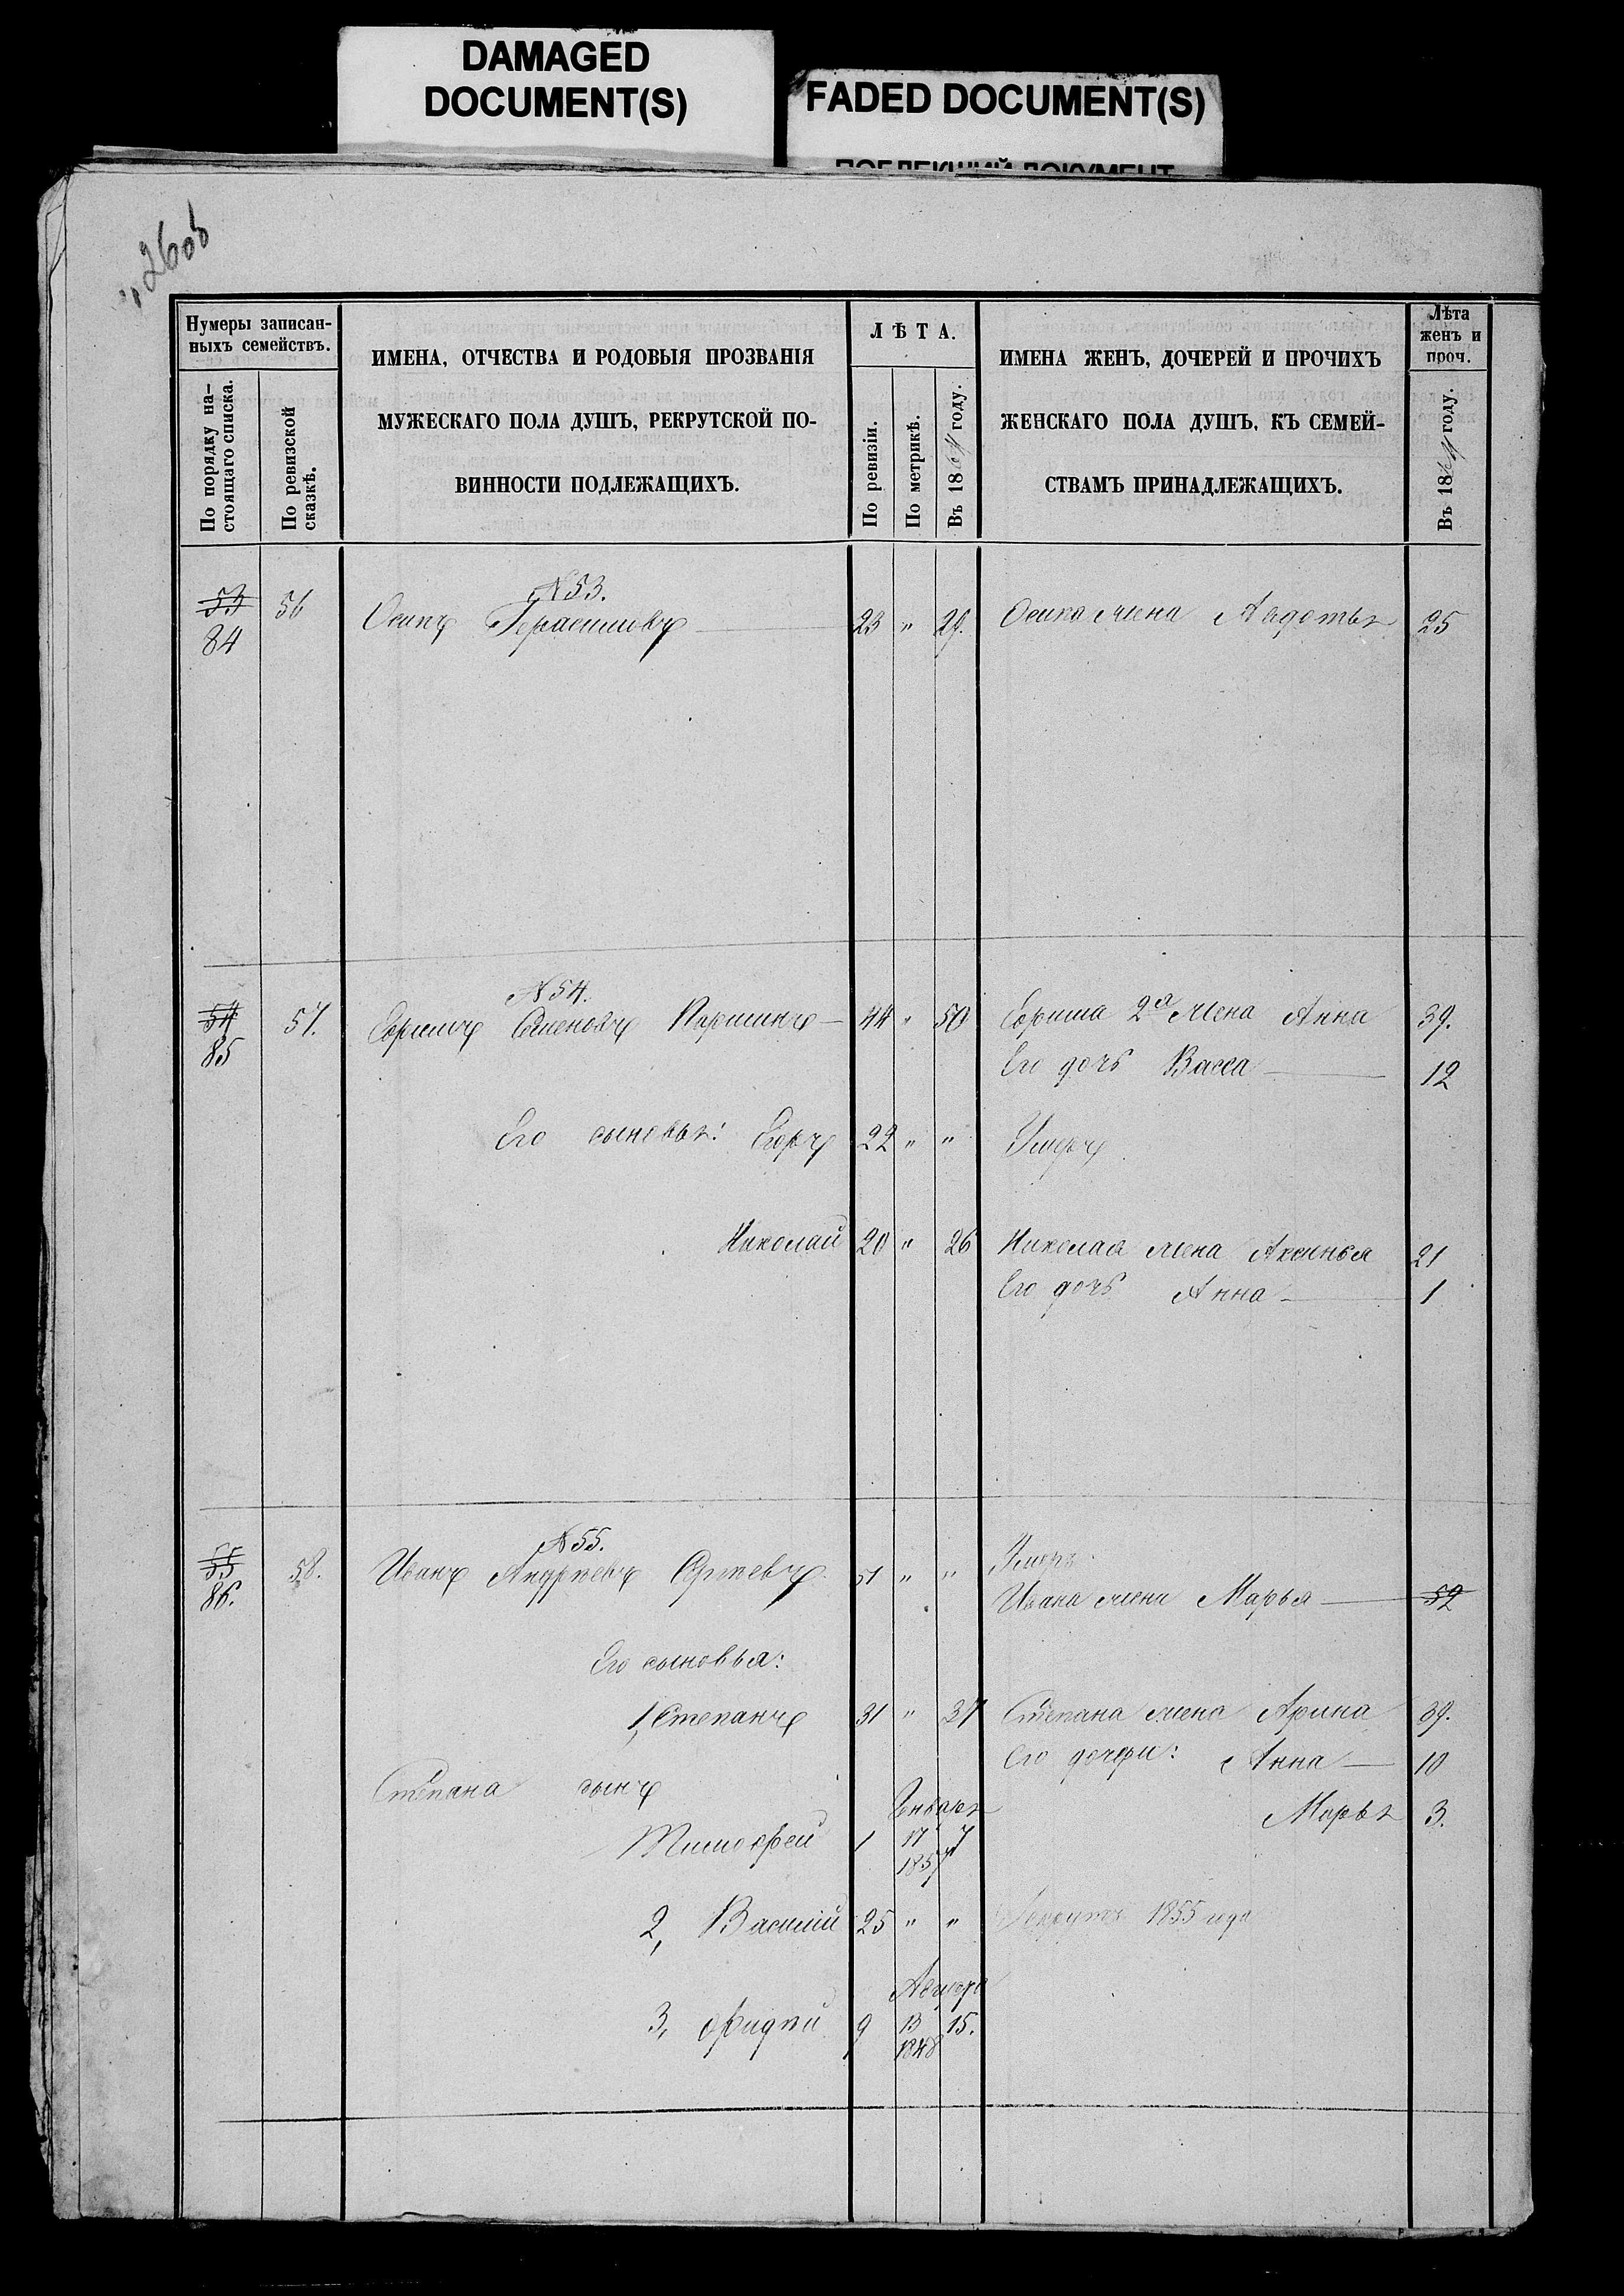 DAMAGED
DOCUMENT(S)
FADED DOCUMENT(S)
ПОБЛЕКШИЙ ДОКУМЕНТ
26об
Нумеры записан-
ныхъ семействъ.
По порядку на-
стоящаго списка.
По ревизской
сказкѣ.
ИМЕНА, ОТЧЕСТВА И РОДОВЫЯ ПРОЗВАНІЯ
МУЖЕСКАГО ПОЛА ДУШЪ, РЕКРУТСКОЙ ПО-
ВИННОСТИ ПОДЛЕЖАЩИХЪ.
ЛѢТА.
По ревизіи.
По метрикѣ.
Въ 1864 году.
ИМЕНА ЖЕНЪ, ДОЧЕРЕЙ И ПРОЧИХЪ
ЖЕНСКАГО ПОЛА ДУШЪ, КЪ СЕМЕЙ-
СТВАМЪ ПРИНАДЛЕЖАЩИХЪ.
Лѣта
женъ и
проч.
Въ 1864 году.
№ 53.
53 56 Осипъ Герасимовъ 23 " 29. Осипа жена Авдотья 25
84
№ 54.
54 57. Ефимъ Семеновъ 44 " 50 Ефима 2я жена Анна 39.
85
Его дочь Васса 12
Его сыновья: Егоръ 22 " " Умеръ
Николай 20 " 26 Николая жена Аксинья 21
Его дочь Анна 1
№ 55.
55 58. Иванъ Андреевъ 51 " " Умеръ
86. Ивана жена Марья 52
Его сыновья:
1, Степанъ 31 " 37 Степана жена Арина 39.
Его дочери: Анна 10
Степана сынъ
Января Марья 3.
Тимофей 1 17 7
1857
2, Василій 25 " " Рекрутъ 1855 года
3, 9 13 15.
1848